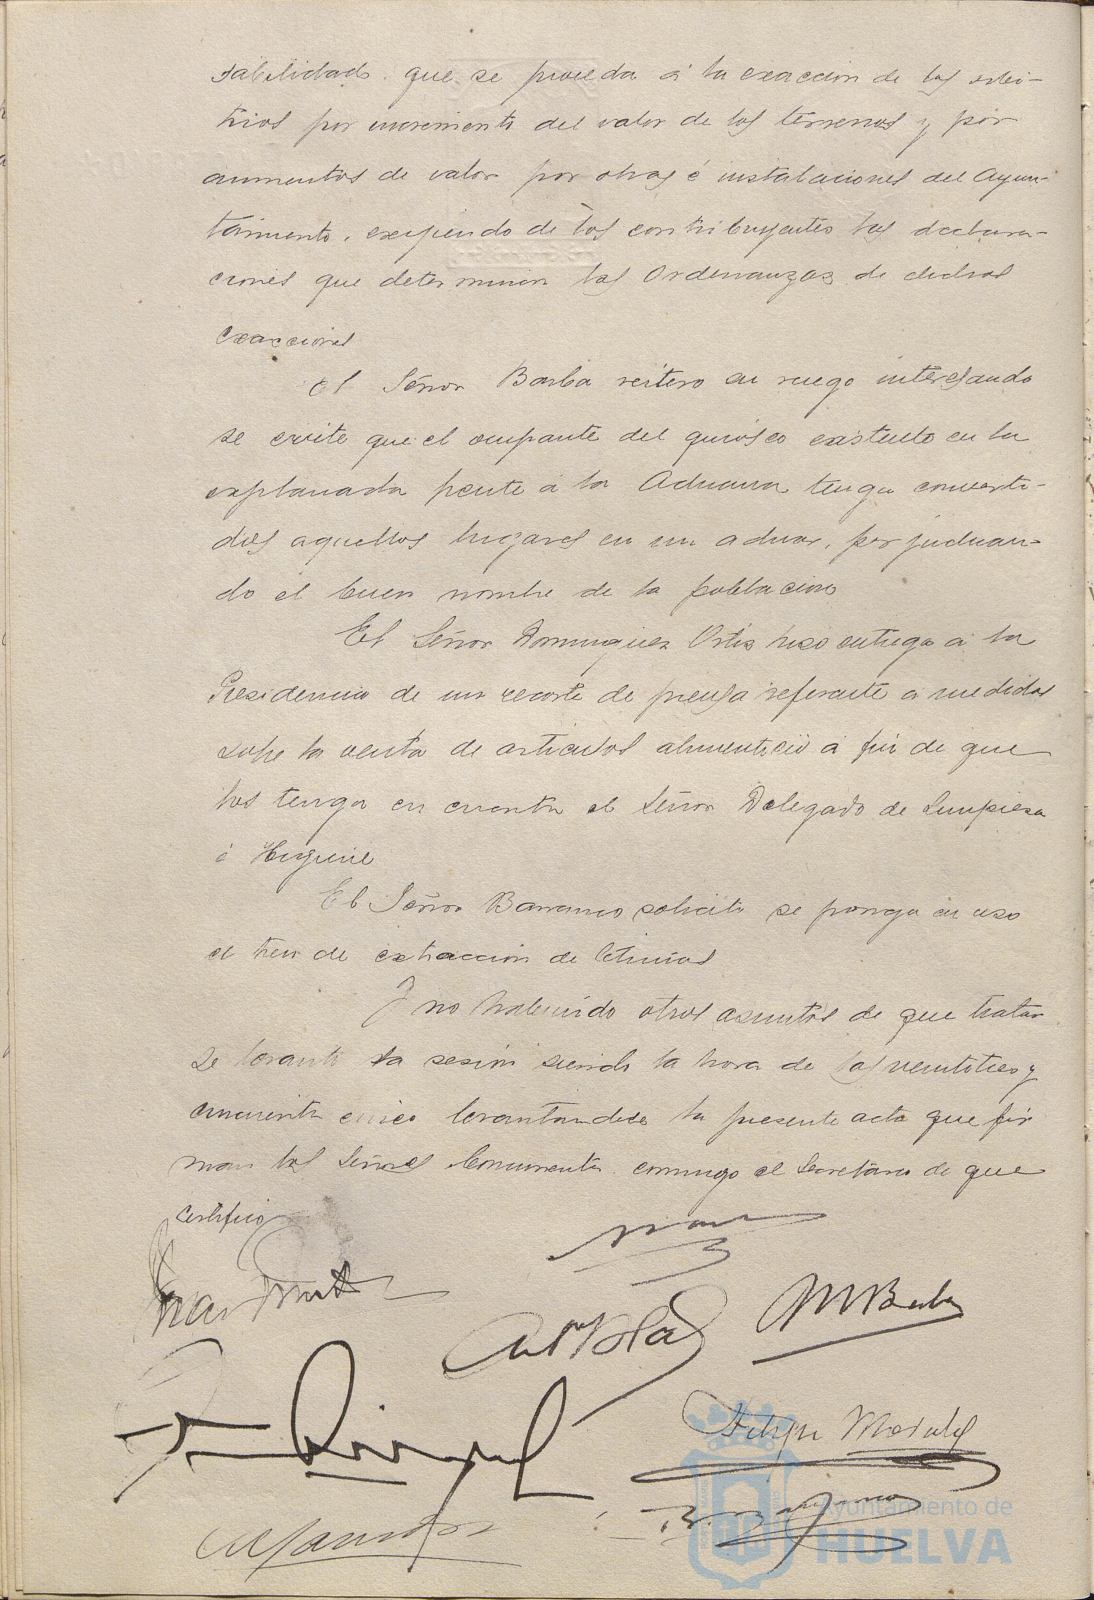 sabilidad. que se proceda á la exacción de los arbi-
trios por incremento del valor de los terrenos y por
aumentos de valor por obras é instalaciones del Ayun-
tamiento, exigiendo de los contribuyentes las declara-
ciones que determinan las Ordenanzas de dichas
exacciones
El Señor Barba reitero su ruego interesando
se evite que el ocupante del quiosco existente en la
explanada frente á la Aduana tenga converti-
dos aquellos lugares en un aduar, perjudican-
do el buen nombre de la población
El Señor Dominguez Ortiz hizo entrega á la
Presidencia de un recorte de prensa referente a medidas
sobre la venta de articulos alimenticio á fin de que
los tenga en cuenta el Señor Delegado de Limpieza
é Higiene
El Señor Barranco solicitó se ponga en uso
el tren de extracción de letrinas
Y no habiendo otros asuntos de que tratar
se levantó la sesión siendo la hora de las veintitres y
cincuenta cinco levantandose la presente acta que fir
man los Señores Concurrentes conmigo el Secretario de que
certifico
M Barba
Felipe Morales
Ayuntamiento de
HUELVA